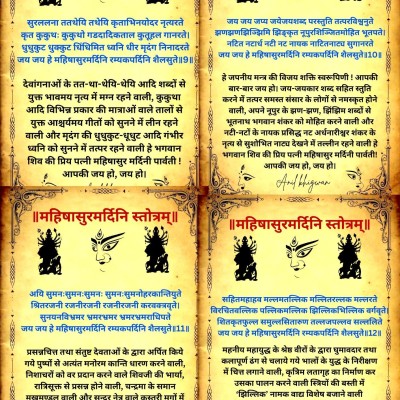 सुरललना ततथेयि तथेयि कृताभिनयोदर नृत्यरते
कृत कुकुथः कुकुथो गडदादिकताल कुतूहल गानरते।
धुधुकुट धुक्कुट धिंधिमित ध्वनि धीर मृदंग निनादरते
जय जय हे महिषासुरमर्दिनि रम्यकपर्दिनि शैलसुते॥9॥
देवांगनाओं के तत-था-थेयि-थेयि आदि शब्दों से
युक्त भावमय नृत्य में मग्न रहने वाली, कुकुथा
आदि विभिन्न प्रकार की मात्राओं वाले तालों से
युक्त आश्चर्यमय गीतों को सुनने में लीन रहने
वाली और मृदंग की धुधुकुट-धूधुट आदि गंभीर
ध्वनि को सुनने में तत्पर रहने वाली हे भगवान
शिव की प्रिय पत्नी महिषासुर मर्दिनी पार्वती !
आपकी जय हो, जय हो।
जय जय जप्य जयेजयशब्द परस्तुति तत्परविश्वनुते
झणझणझिञ्झिमि झिङ्कृत नूपुरशिञ्जितमोहित भूतपते।
नटित नटार्ध नटी नट नायक नाटितनाट्य सुगानरते
जय जय हे महिषासुरमर्दिनि रम्यकपर्दिनि शैलसुते॥10॥
हे जपनीय मन्त्र की विजय शक्ति स्वरूपिणी ! आपकी
बार-बार जय हो। जय-जयकार शब्द सहित स्तुति
करने में तत्पर समस्त संसार के लोगों से नमस्कृत होने
वाली, अपने नूपुर के झण-झण, झिंझिम शब्दों से
भूतनाथ भगवान शंकर को मोहित करने वाली और
नटी-नटों के नायक प्रसिद्ध नट अर्धनारीश्वर शंकर के
नृत्य से सुशोभित नाट्य देखने में तल्लीन रहने वाली हे
भगवान शिव की प्रिय पत्नी महिषासुर मर्दिनी पार्वती!
आपकी जय हो, जय हो।
Anil bhigwan
॥महिषासुरमर्दिनि स्तोत्रम्॥
अयि सुमनःसुमनःसुमनः सुमनःसुमनोहरकान्तियुते
श्रितरजनी रजनीरजनी रजनीरजनी करवक्त्रवृते।
सुनयनविभ्रमर भ्रमरभ्रमर भ्रमरभ्रमराधिपते
जय जय हे महिषासुरमर्दिनि रम्यकपर्दिनि शैलसुते॥11॥
प्रसन्नचित्त तथा संतुष्ट देवताओं के द्वारा अर्पित किये
गये पुष्पों से अत्यंत मनोरम कान्ति धारण करने वाली,
निशाचरों को वर प्रदान करने वाले शिवजी की भार्या,
रात्रिसूक्त से प्रसन्न होने वाली, चन्द्रमा के समान
मुखमण्डल वाली और सुन्दर नेत्र वाले कस्तूरी मृगों में
॥महिषासुरमर्दिनि स्तोत्रम्॥
सहितमहाहव मल्लमतल्लिक मल्लितरल्लक मल्लरते
विरचितवल्लिक पल्लिकमल्लिक झिल्लिकभिल्लिक वर्गवृते।
शितकृतफुल्ल समुल्लसितारुण तल्लजपल्लव सल्ललिते
जय जय हे महिषासुरमर्दिनि रम्यकपर्दिनि शैलसुते॥12॥
महनीय महायुद्ध के श्रेष्ठ वीरों के द्वारा घुमावदार तथा
कलापूर्ण ढंग से चलाये गये भालों के युद्ध के निरीक्षण
में चित्त लगाने वाली, कृत्रिम लतागृह का निर्माण कर
उसका पालन करने वाली स्त्रियों की बस्ती में
‘झिल्लिक’ नामक वाद्य विशेष बजाने वाली